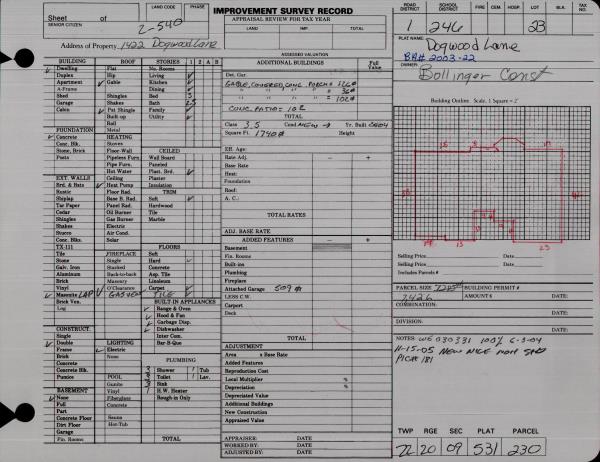 IMPROVEMENT SURVEY RECORD
Sheet of
SENIOR CITIZEN
Z-540
PHASE
Address of Property 1422 Dogwood Lane
APPRAISAL REVIEW FOR TAX YEAR
LAND IMP. TOTAL
LAND IMP. TOTAL
ASSESSED VALUATION
ROAD DISTRICT
SCHOOL DISTRICT
FIRE CEM. HOSP. LOT BLK. TAX NO.
1 246 23
PLAT NAME:
Dogwood Lane
BA# 2003-22
OWNER:
Bollinger Const
BUILDING ROOF STORIES 1 2 A B
Dwelling Flat No. Rooms
Duplex Hip Living
Apartment Gable Kitchen
A-Frame Dining
Shed Shingles Bed
Garage Shakes Bath 2.5
Cabin Pat. Shingle Family
Built-up Utility
Roll
FOUNDATION Metal
Concrete HEATING
Conc. Blk. Stoves CEILED
Stone, Brick Floor-Wall Wall Board
Posts Pipeless Furn. Paneled
Pipe Furn. Plast. Brd.
Hot Water Plaster
EXT. WALLS Ceiling Insulation
Brd. & Bats Heat Pump TRIM
Rustic Floor Rad.
Shiplap Base B. Rad. Soft
Tar Paper Panel Rad. Hardwood
Cedar Oil Burner Tile
Shingles Gas Burner Marble
Shakes Electric
Stucco Air Cond.
Conc. Blks. Solar
TX-111 FLOORS
Tile FIREPLACE Soft
Stone Single Hard
Galv. Iron Stacked Concrete
Aluminum Back-to-back Asp. Tile
Brick Masonry Linoleum
Vinyl O'Clearance Carpet
Masonite LAP GAS VENT TILE
Brick Ven. BUILT-IN APPLIANCES
Log Range & Oven
Hood & Fan
Garbage Disp.
CONSTRUCT. Dishwasher
Single Inter Com.
Double LIGHTING Bar-B-Que
Frame Electric
Brick None PLUMBING
Concrete
Concrete Blk. Shower Tub
Pumice POOL Toilet Lav.
Gunite Sink
BASEMENT Vinyl H.W. Heater
None Fiberglass Rough-in Only
Full Concrete
Part
Concrete Floor Sauna
Dirt Floor Hot-Tub
Garage
Fin. Rooms TOTAL
ADDITIONAL BUILDINGS Full Value
Det. Gar.
GABLE, COVERED, CONC. PORCH
" " " = 36⌀
" " " = 102⌀
CONC. PATIO = 102
TOTAL
Class 3.5 Cond NEW Yr. Built 2004
Square Ft. 1740⌀ Height
Eff. Age:
Rate Adj. — +
Base Rate
Heat:
Foundation
Roof:
A. C.:
TOTAL RATES
ADJ. BASE RATE
ADDED FEATURES — +
Basement
Fin. Rooms
Built-ins
Plumbing
Fireplace
Attached Garage 509⌀
LESS C.W.
Carport
Deck
TOTAL
ADJUSTMENT
Area x Base Rate
Added Features
Reproduction Cost
Local Multiplier %
Depreciation %
Depreciated Value
Additional Buildings
New Construction
Appraised Value
APPRAISER: DATE
WORKED BY: DATE
ADJUSTED BY: DATE
Building Outline. Scale, 1 Square = 2'
Selling Price Date:
Selling Price Date:
Includes Parcels #
PARCEL SIZE BUILDING PERMIT #
7426 AMOUNT $ DATE:
COMBINATION:
DATE:
DIVISION:
DATE:
NOTES WE030331 100% 6-3-04
11-15-05 NEW NICE
PIC# 181
TWP RGE SEC PLAT PARCEL
22 20 09 531 230